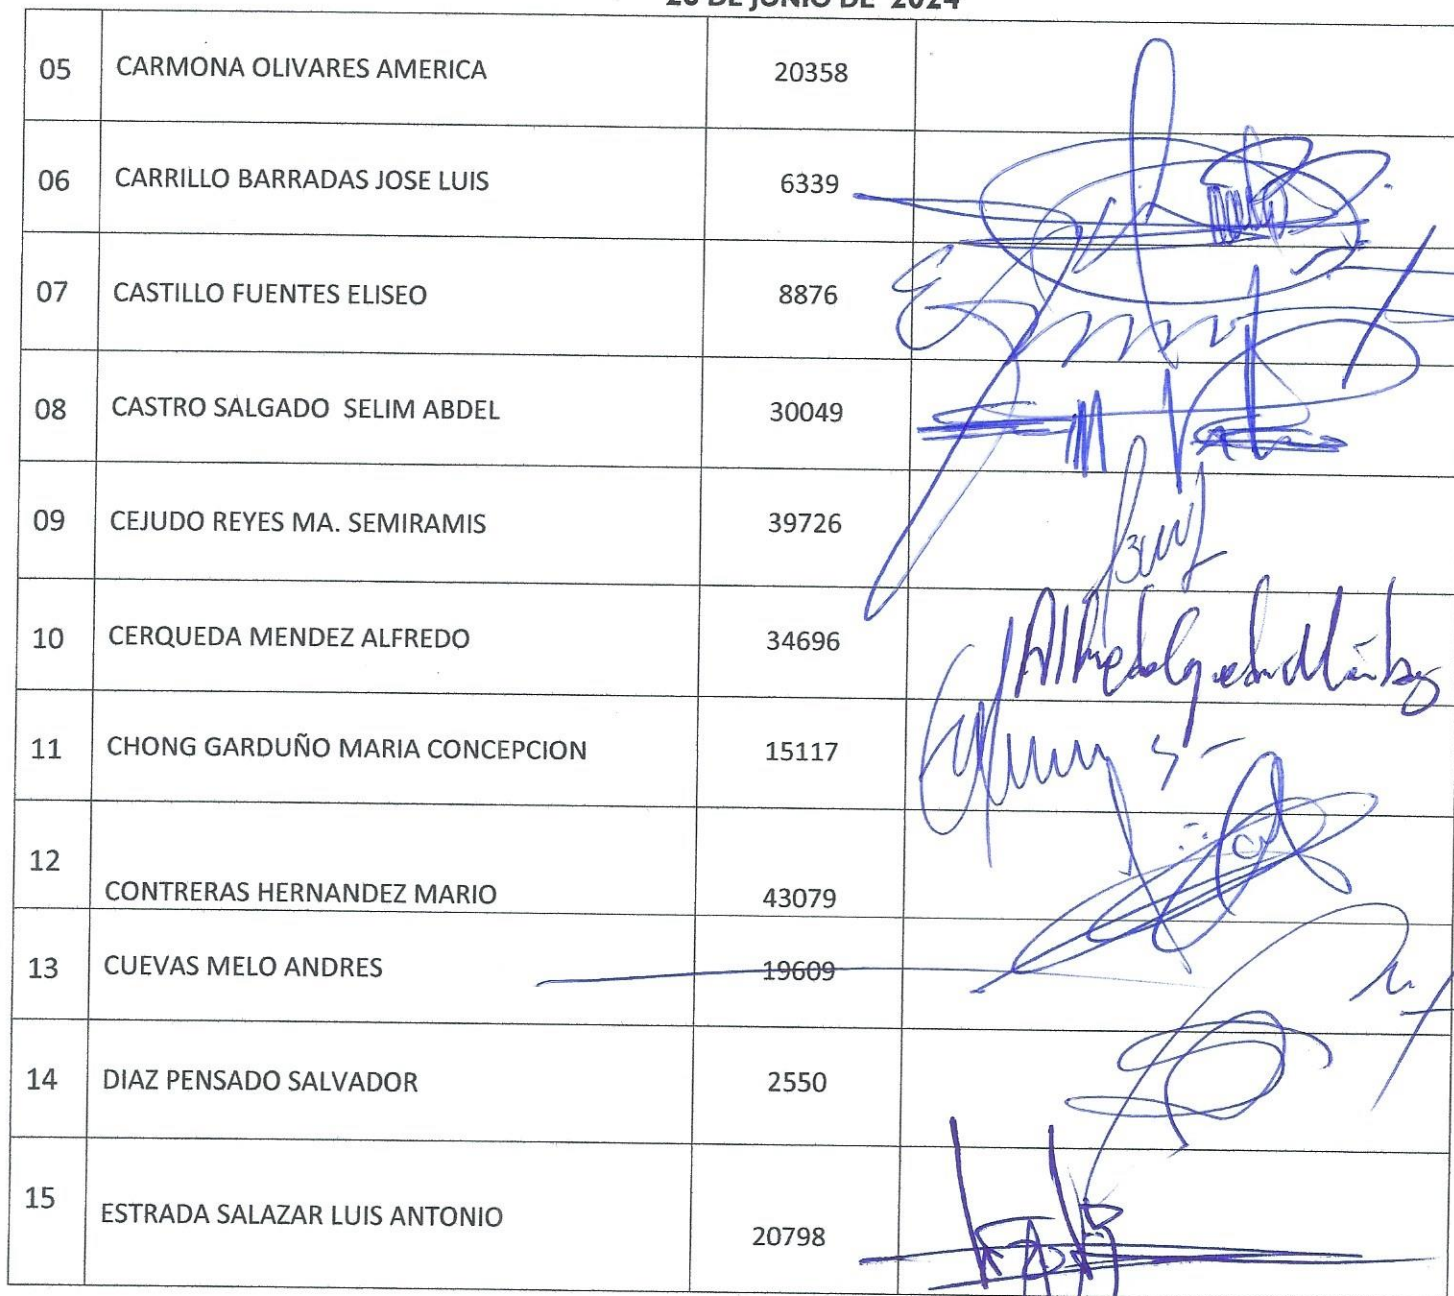 DE JUNIO DE 2024
05 CARMONA OLIVARES AMERICA 20358
06 CARRILLO BARRADAS JOSE LUIS 6339
07 CASTILLO FUENTES ELISEO 8876
08 CASTRO SALGADO SELIM ABDEL 30049
09 CEJUDO REYES MA. SEMIRAMIS 39726
10 CERQUEDA MENDEZ ALFREDO 34696
11 CHONG GARDUÑO MARIA CONCEPCION 15117
12 CONTRERAS HERNANDEZ MARIO 43079
13 CUEVAS MELO ANDRES 19609
14 DIAZ PENSADO SALVADOR 2550
15 ESTRADA SALAZAR LUIS ANTONIO 20798